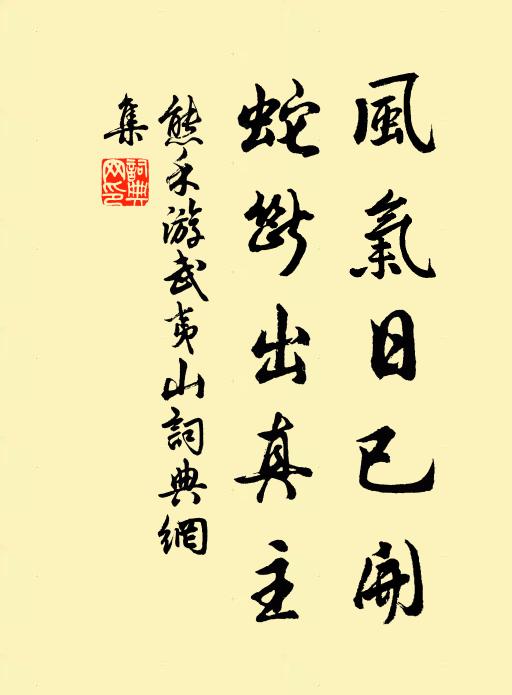 風氣日已開
蛇斷出真主
熊禾游武夷山詞典網
集
詞典
网印